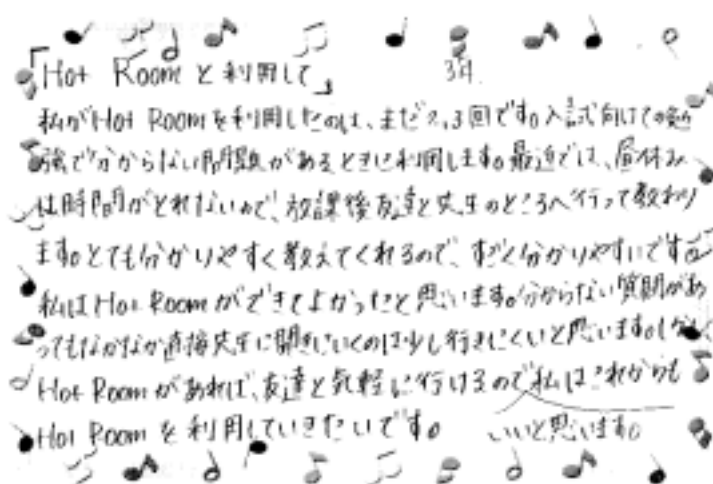 「Hot Room と利用して」 3月
私がHot Roomを利用したのは、まだ2,3回です。入試向けての勉
強で分からない問題があるときに利用します。最近では、昼休み
は時間がとれないので、放課後友達と先生のところへ行って教わり
ます。とても分かりやすく教えてくれるので、すごく分かりやすいです。
私はHot Roomができてよかったと思います。分からない質問があ
ってもなかなか直接先生に聞きにいくのは少し行きにくいと思います。しかし、
Hot Roomがあれば、友達と気軽に行けるので私はこれからも
Hot Roomを利用していきたいです。 いいと思います。